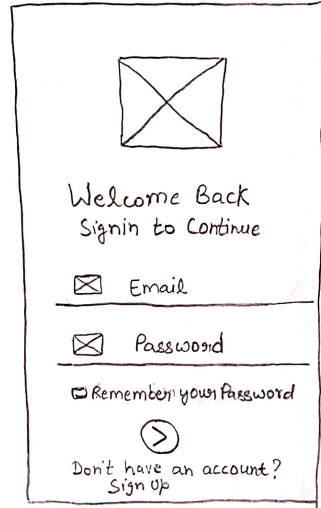 Welcome Back
Signin to Continue
Email
Password
Remember your Password
Don't have an account?
Sign Up